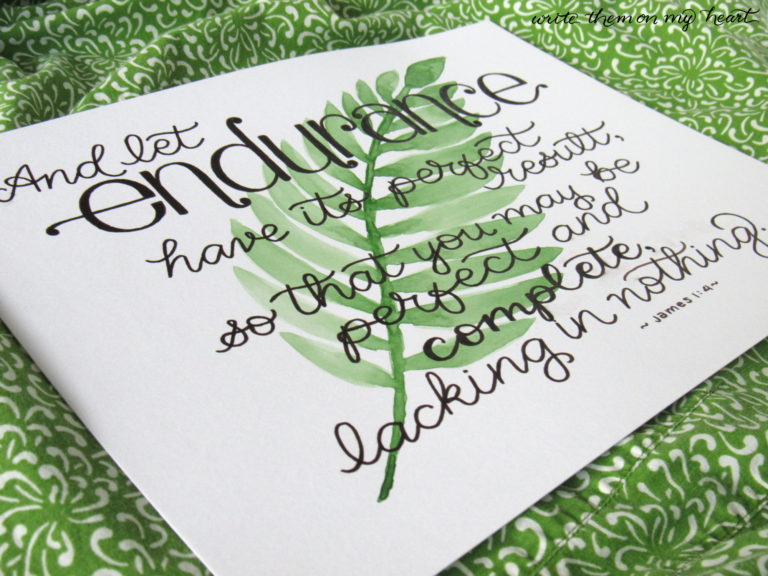 write them on my heart
And let
endurance
have its perfect
result,
so that you may be
perfect and
complete,
lacking in nothing.
~ James 1:4 ~